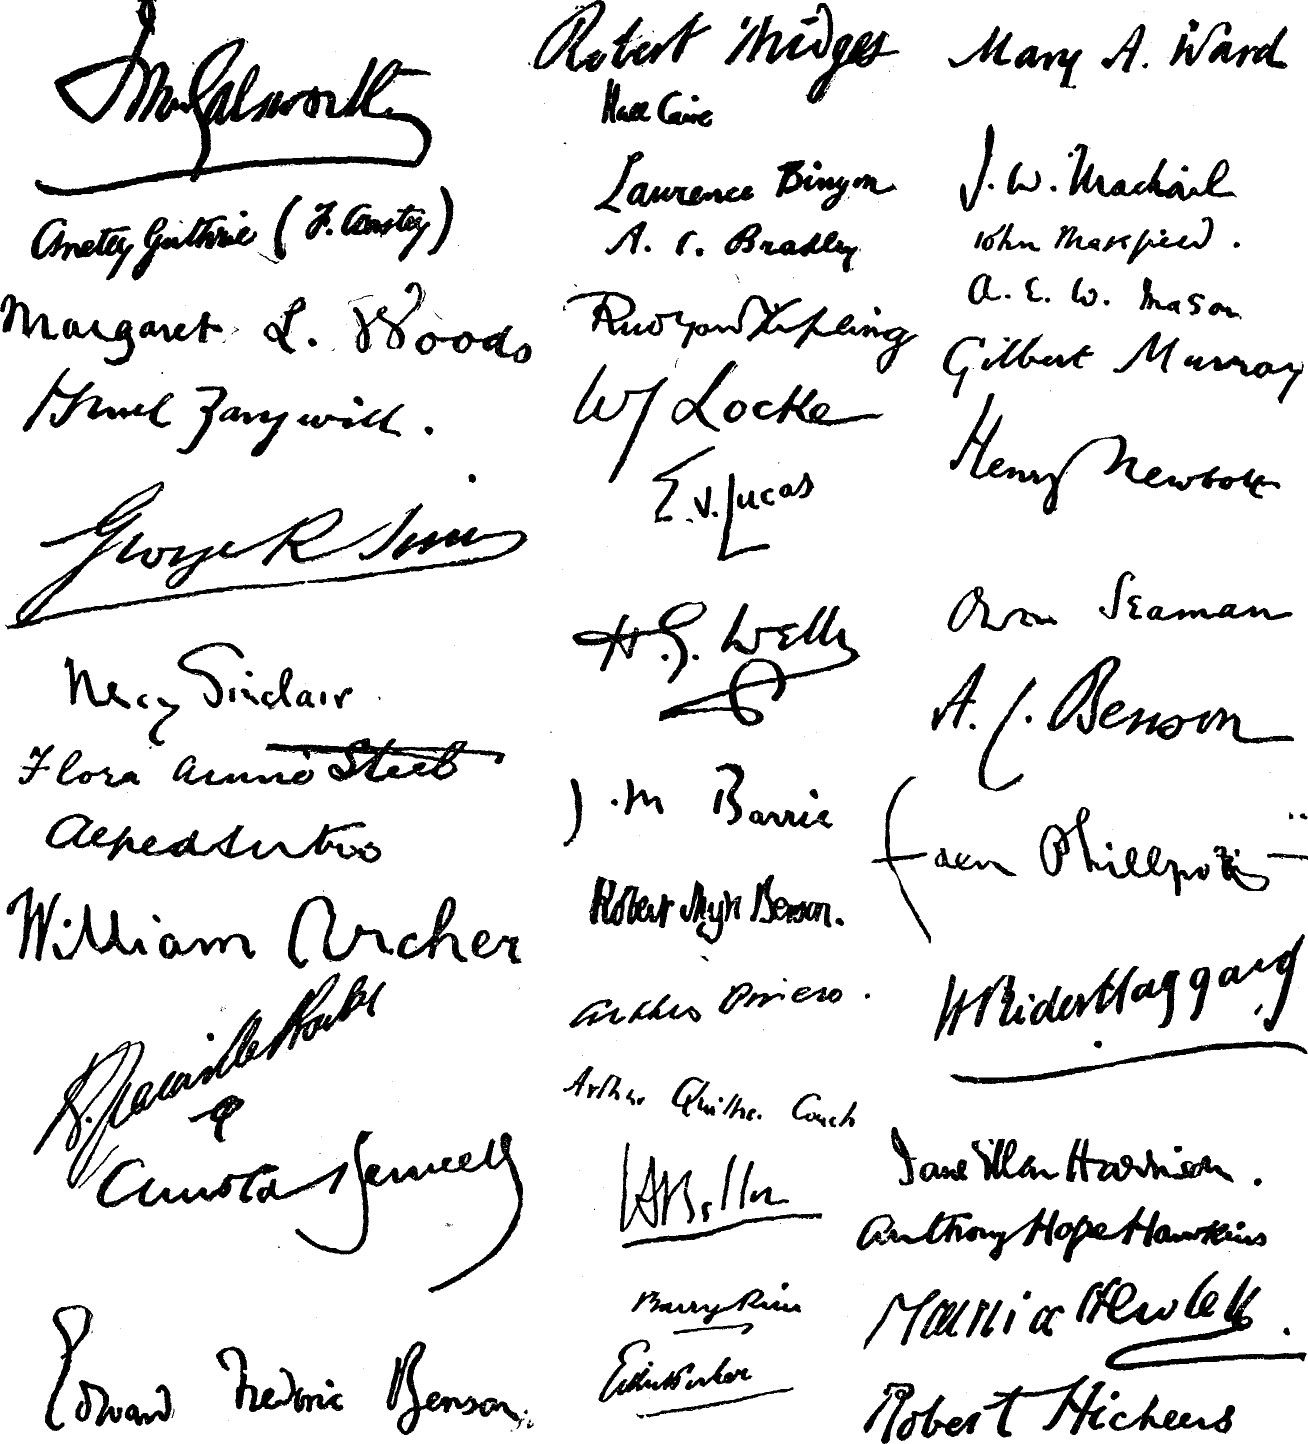 John Galsworthy
Anstey Guthrie (F. Anstey)
Margaret L. Woods
Israel Zangwill.
George R Sims
May Sinclair
Flora Annie Steel
Alfred Sutro
William Archer
H. Granville Barker
Arnold Bennett
Edward Frederic Benson.
Robert Bridges
Hall Caine
Laurence Binyon
A. C. Bradley
Rudyard Kipling
W J Locke
E. V. Lucas
H. G. Wells
J. M Barrie
Robert Hugh Benson.
Arthur Pinero.
Arthur Quiller Couch
H Belloc
Barry Pain
Gilbert Parker
Mary A. Ward
J. W. Mackail
John Masefield.
A. E. W. Mason
Gilbert Murray
Henry Newbolt
Owen Seaman
A. C. Benson
Eden Phillpotts
H Rider Haggard
Jane Ellen Harrison.
Anthony Hope Hawkins
Maurice Hewlett.
Robert Hichens